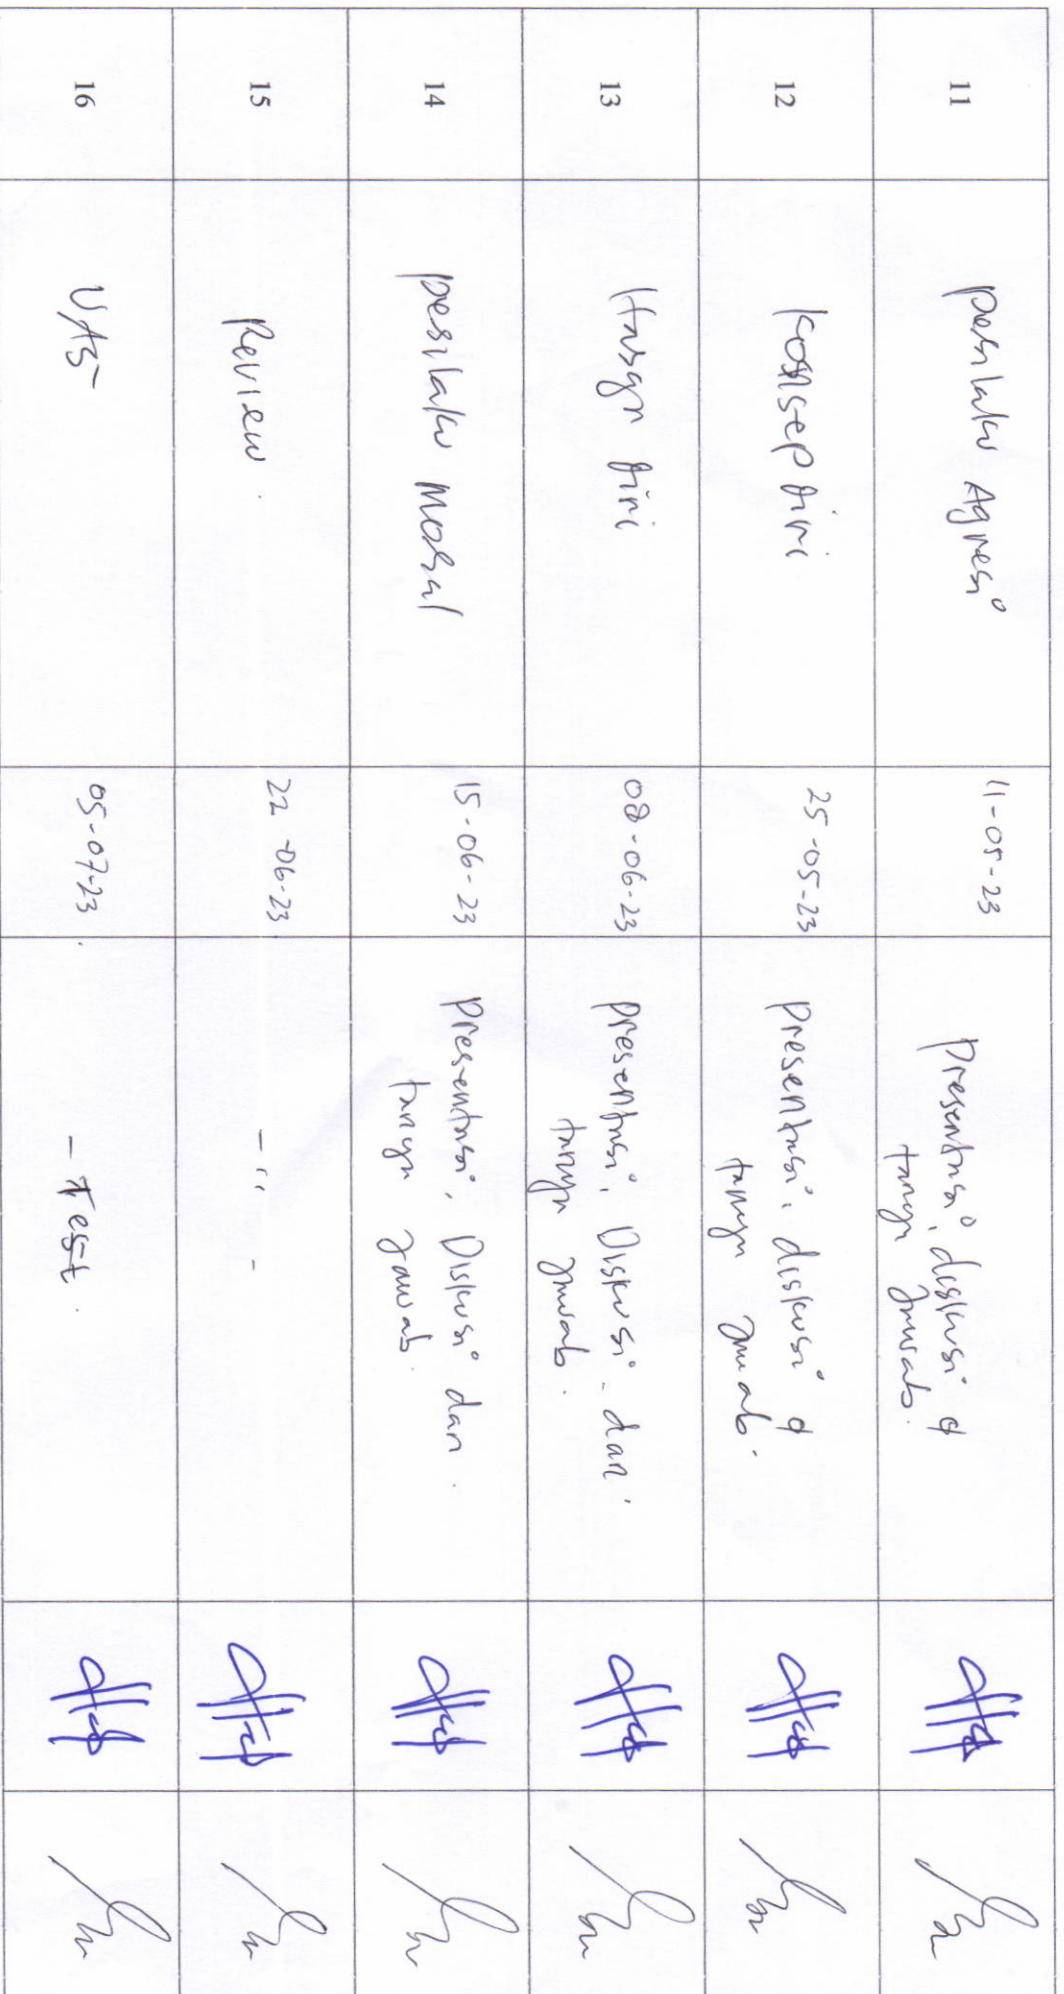 11 Perilaku Agresi 11-05-23 Presentasi, diskusi &
tanya jawab.
12 Konsep diri 25-05-23 Presentasi, diskusi &
tanya jawab.
13 Harga diri 08-06-23 Presentasi, Diskusi dan
tanya jawab.
14 perilaku Moral 15-06-23 Presentasi, Diskusi dan
tanya jawab.
15 Review 22-06-23 - " -
16 UAS 05-07-23 - Test.